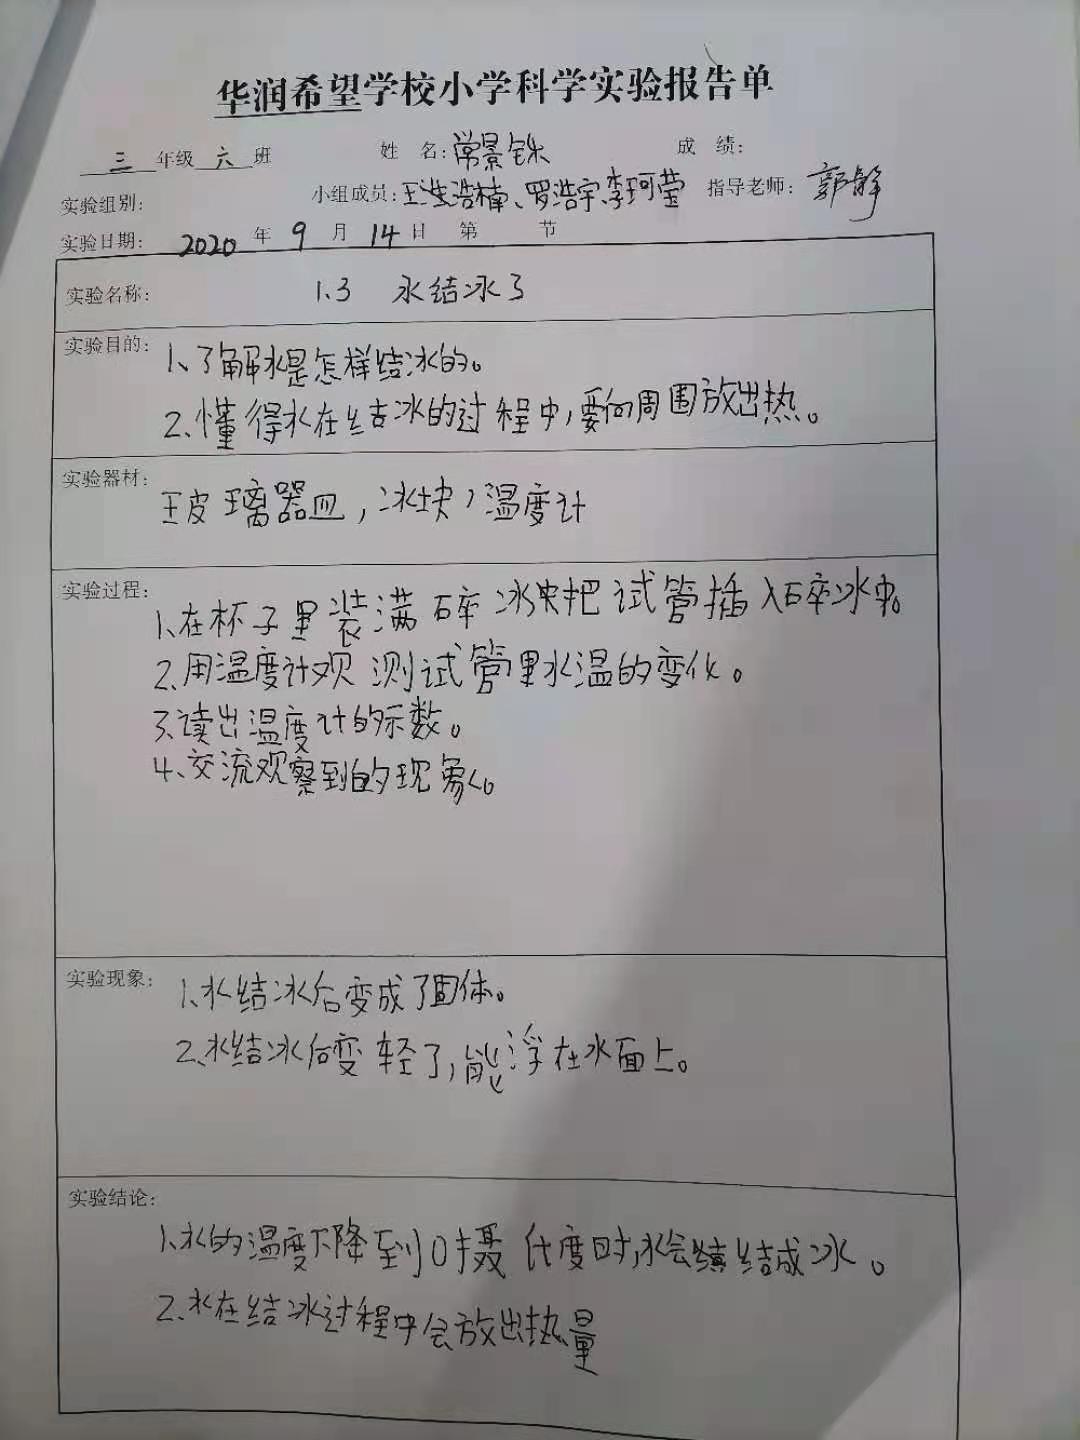 华润希望学校小学科学实验报告单
三 年级 六 班 姓 名:常景铢 成 绩:
实验组别: 小组成员:王浩楠、罗浩宇、李珂莹 指导老师:郭解
实验日期: 2020 年 9 月 14 日 第 节
实验名称: 1.3 水结冰了
实验目的: 1、了解水是怎样结冰的。
2、懂得水在结冰的过程中,要向周围放出热。
实验器材: 玻璃器皿,冰块,温度计
实验过程: 1、在杯子里装满碎冰块把试管插入碎冰中。
2、用温度计观测试管里水温的变化。
3、读出温度计的示数。
4、交流观察到的现象。
实验现象: 1、水结冰后变成了固体。
2、水结冰后变轻了,能浮在水面上。
实验结论:
1、水的温度下降到0摄氏度时,水会结成冰。
2、水在结冰过程中会放出热量